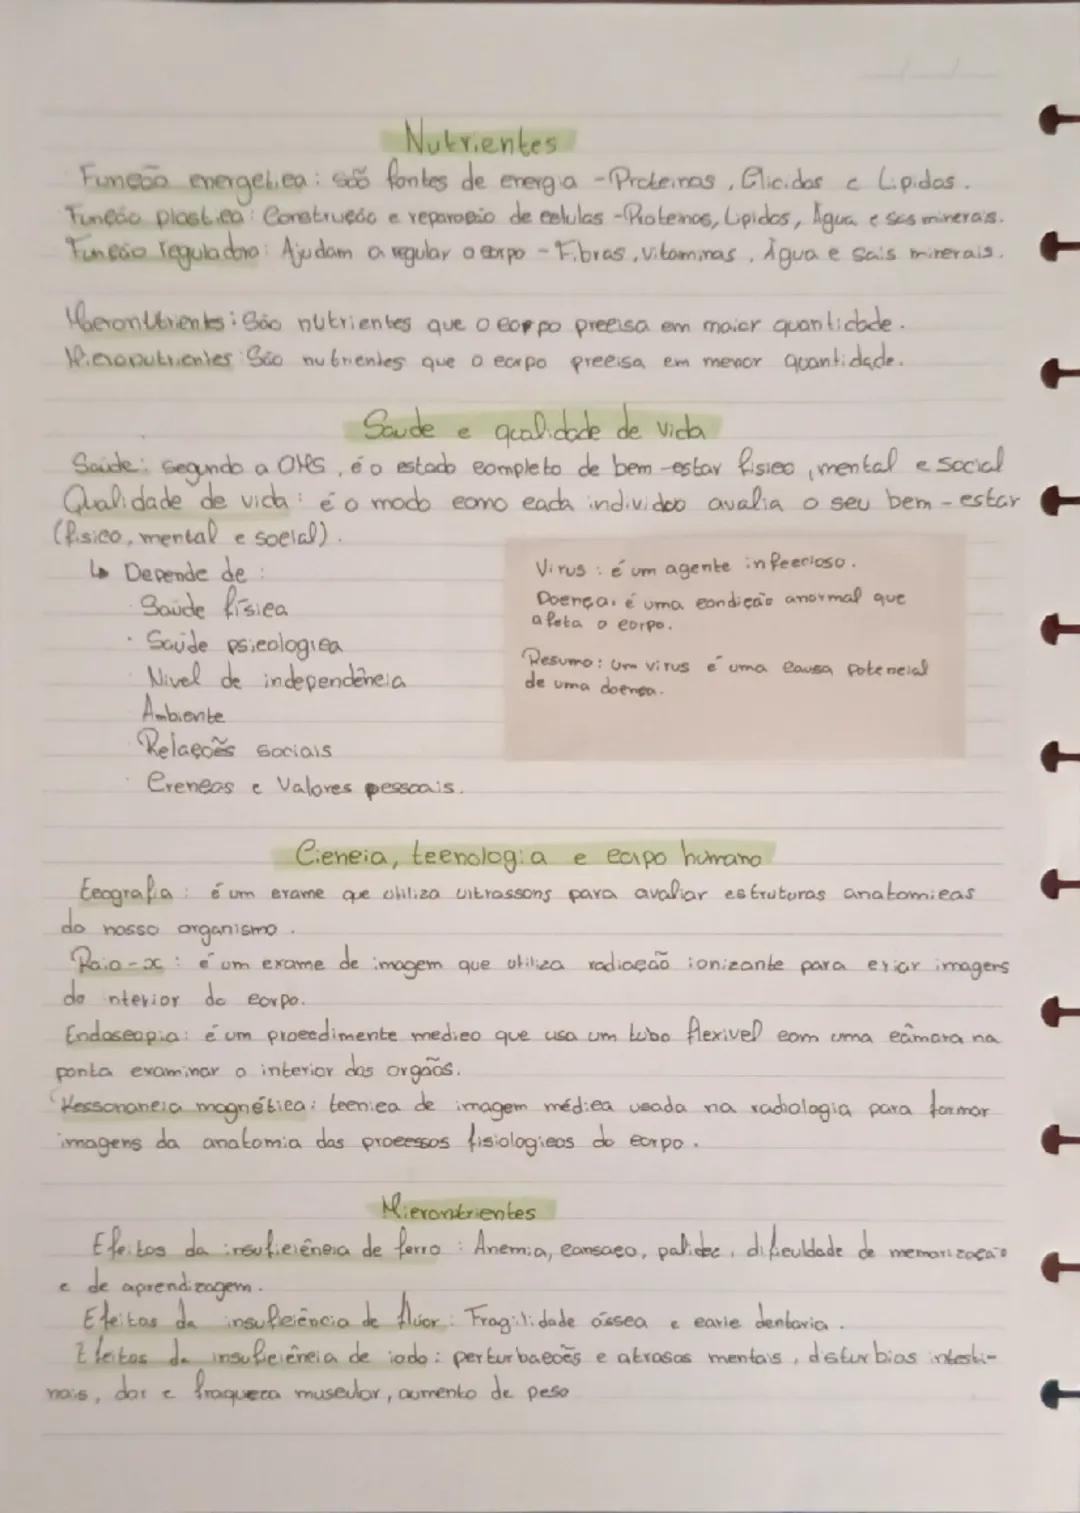 Nutrientes
Função energetica: são fontes de energia - Proteinas, Glicidos e Lipidos.
Função plastica: Construção e reparação de celulas - Proteinas, Lipidos, Água e sais minerais.
Função reguladora: Ajudam a regular o corpo - Fibras, vitaminas, Água e sais minerais.
Macronutrientes: São nutrientes que o corpo precisa em maior quantidade.
Micronutrientes: São nutrientes que o corpo precisa em menor quantidade.
Saude e qualidade de vida
Saúde: segundo a OMS, é o estado completo de bem-estar fisico, mental e social
Qualidade de vida: é o modo como cada individuo avalia o seu bem-estar
(fisico, mental e social).
↳ Depende de:
· Saúde física
· Saúde psicologica
· Nivel de independência
· Ambiente
· Relações sociais
· Crenças e Valores pessoais.
Virus: é um agente infeccioso.
Doença: é uma condição anormal que
afeta o corpo.
Resumo: um virus é uma causa potencial
de uma doença.
Ciencia, tecnologia e corpo humano
Ecografia: é um exame que utiliza ultrassons para avaliar estruturas anatomicas
do nosso organismo.
Raio-x: é um exame de imagem que utiliza radiação ionizante para criar imagens
do interior do corpo.
Endoscopia: é um procedimento medico que usa um tubo flexivel com uma câmara na
ponta examinar o interior dos orgãos.
Ressonancia magnética: tecnica de imagem médica usada na radiologia para formar
imagens da anatomia das processos fisiologicos do corpo.
Micronutrientes
Efeitos da insuficiência de ferro: Anemia, cansaço, palidec, dificuldade de memorização
e de aprendizagem.
Efeitos da insuficiência de flúor: Fragilidade óssea e carie dentaria.
Efeitos da insuficiência de iodo: perturbações e atrasos mentais, disturbios intesti-
nais, dor e fraqueza muscular, aumento de peso